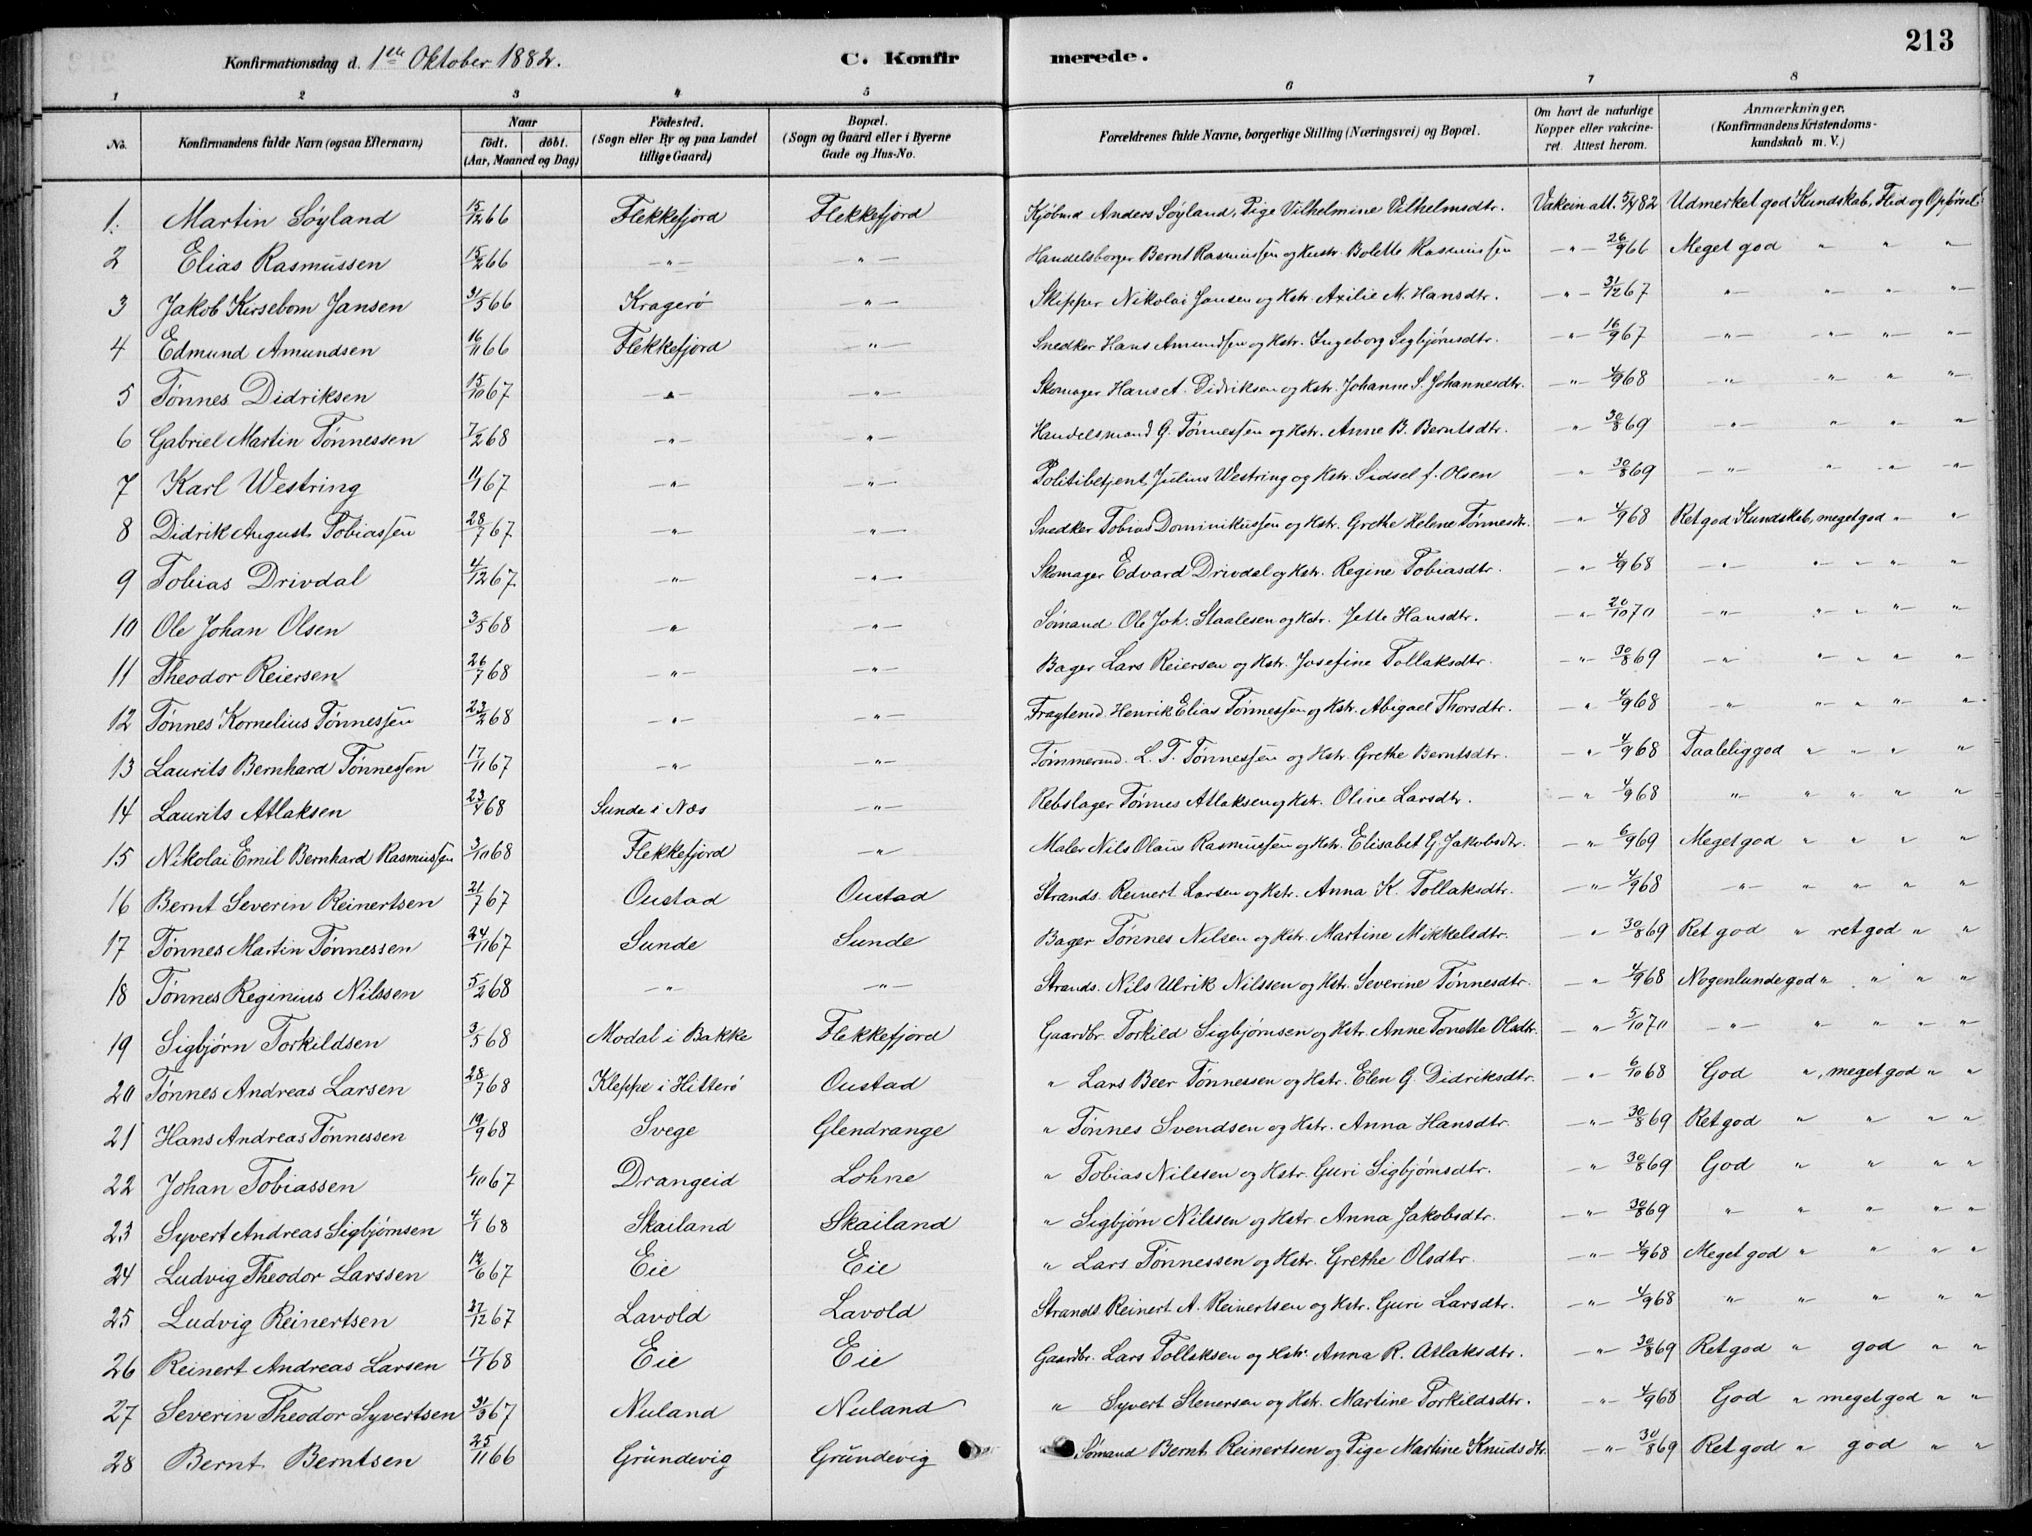 213
Konfirmationsdag d. 1ste Oktober 1882. C. Konfirmerede.
1 2 3 4 5 6 7 8
No. Konfirmandens fulde Navn (ogsaa Efternavn) Naar født. døbt. (Aar, Maaned og Dag) Fødested. (Sogn eller By og paa Landet tillige Gaard) Bopæl. (Sogn og Gaard eller i Byerne Gade og Hus-No. Forældrenes fulde Navne, borgerlige Stilling (Næringsvei) og Bopæl. Om havt de naturlige Kopper eller vakcineret. Attest herom. Anmærkninger. (Konfirmandens Kristendomskundskab m. V.)
1. Martin Søyland 15/12 66 Flekkefjord Flekkefjord Kjøbmd Anders Søyland, Pige Vilhelmine Vilhelmsdtr. Vakcin att. 82 Udmerket god Kundskab, Flid og Opførsel
2 Elias Rasmussen 15/2 66 -"- -"- Handelsborger Bernt Rasmussen og Hustr. Bolette Rasmussen -"- 26/9 66 Meget god " " "
3 Jakob Kirsebom Jansen 31/5 66 Kragerø -"- Skipper Nikolai Jansen og Hstr. Axilie M. Hansdtr. -"- 31/12 67 -"- " " "
4 Edmund Amundsen 16/11 66 Flekkefjord -"- Snedker Hans Amundsen og Hstr. Ingeborg Sigbjørnsdtr. -"- 16/9 67 -"- " " "
5 Tønnes Didriksen 15/10 67 -"- -"- Skomager Hans A. Didriksen og Hstr. Johanne S. Johannesdtr. -"- 4/9 68 -"- " " "
6 Gabriel Martin Tønnessen 7/2 68 -"- -"- Handelsmand G. Tønnessen og Hstr. Anne B. Berntsdtr. -"- 30/8 69 -"- " " "
7 Karl Westring 11/1 67 -"- -"- Politibetjent Julius Westring og Hstr. Sidsel f. Olsen -"- 30/8 69 -"- " " "
8 Didrik August Tobiassen 28/7 67 -"- -"- Snedker Tobias Dominikussen og Hstr. Grethe Helene Tønnesdtr. -"- 4/9 68 Ret god Kundskab, meget god " "
9 Tobias Drivdal 4/12 67 -"- -"- Skomager Edvard Drivdal og Hstr. Regine Tobiasdtr. -"- 4/9 68 -"- " " " "
10 Ole Johan Olsen 3/5 68 -"- -"- Sømand Ole Joh. Staalesen og Hstr. Jette Hansdtr. -"- 20/10 70 -"- " " " "
11 Theodor Reiersen 26/7 68 -"- -"- Bager Lars Reiersen og Hstr. Josefine Tollaksdtr. -"- 30/8 69 -"- " " " "
12 Tønnes Kornelius Tønnessen 23/2 68 -"- -"- Fragtemd. Henrik Elias Tønnessen og Hstr. Abigael Thorsdtr. -"- 4/9 68 -"- " " " "
13 Laurits Bernhard Tønnessen 17/11 67 -"- -"- Tømmermd. L. T. Tønnessen og Hstr. Grethe Berntsdtr. -"- 4/9 68 Taalelig god " " " "
14 Laurits Atlaksen 23/4 68 Sunde i Næs -"- Rebslager Tønnes Atlaksen og Hstr. Oline Larsdtr. -"- 4/9 68 -"- " " " "
15 Nikolai Emil Bernhard Rasmussen 3/10 68 Flekkefjord -"- Maler Nils Olaus Rasmussen og Hstr. Elisabet G. Jakobsdtr. -"- 6/9 69 Meget god " " " "
16 Bernt Severin Reinertsen 21/7 67 Oustad Oustad Strands. Reinert Larsen og Hstr. Anna K. Tollaksdtr. -"- 4/9 68 -"- " " " "
17 Tønnes Martin Tønnessen 24/11 67 Sunde Sunde Bager Tønnes Nilsen og Hstr. Martine Mikkelsdtr. -"- 30/8 69 Ret god " ret god " "
18 Tønnes Reginius Nilssen 5/2 68 -"- -"- Strands. Nils Ulrik Nilssen og Hstr. Severine Tønnesdtr. -"- 4/9 68 Nogenlunde god " " " "
19 Sigbjørn Torkildsen 3/5 68 Modal i Bakke Flekkefjord Gaardbr. Torkild Sigbjørnsen og Hstr. Anne Tonette Olsdtr. -"- 5/10 70 -"- " " " "
20 Tønnes Andreas Larsen 28/7 68 Kleppe i Hitterø Oustad " Lars Beer Tønnessen og Hstr. Elen G. Didriksdtr. -"- 6/10 68 God ", meget god " "
21 Hans Andreas Tønnessen 19/9 68 Svege Glendrange " Tønnes Svendsen og Hstr. Anna Hansdtr. -"- 30/8 69 Ret god " " " "
22 Johan Tobiassen 1/10 67 Drangeid Lohne " Tobias Nilssen og Hstr. Guri Sigbjørnsdtr. -"- 30/8 69 God " " " "
23 Syvert Andreas Sigbjørnsen 4/1 68 Skailand Skailand " Sigbjørn Nilssen og Hstr. Anna Jakobsdtr. -"- 30/8 69 " " " " "
24 Ludvig Theodor Larssen 12/6 67 Eie Eie " Lars Tønnessen og Hstr. Grethe Olsdtr. -"- 4/9 68 Meget god " " " "
25 Ludvig Reinertsen 27/12 67 Lavold Lavold Strands. Reinert A. Reinertsen og Hstr. Guri Larsdtr. -"- 4/9 68 " " " " "
26 Reinert Andreas Larsen 17/1 68 Eie Eie Gaardbr. Lars Tollaksen og Hstr. Anna R. Atlaksdtr. -"- 30/8 69 Ret god " god " "
27 Severin Theodor Syvertsen 31/3 67 Nuland Nuland " Syvert Stenersen og Hstr. Martine Torkildsdtr. -"- 4/9 68 God " meget god " "
28 Bernt Berntsen 25/11 66 Grundevig Grundevig Sømand Bernt Reinertsen og Pige Martine Knudsdtr. -"- 30/8 69 Ret god " god " "